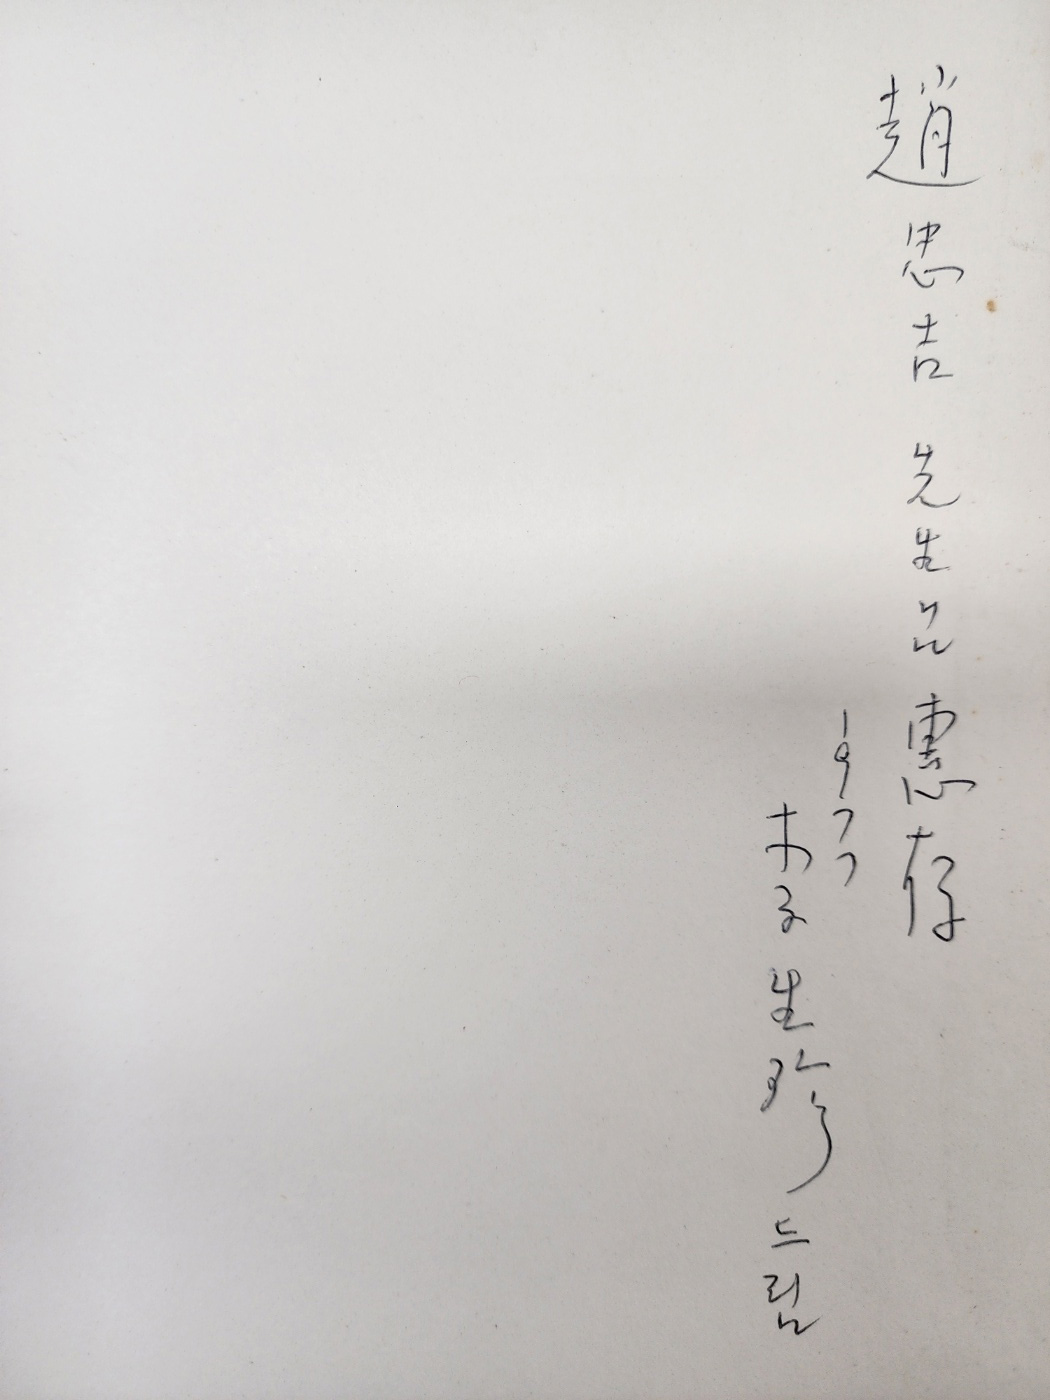 趙忠吉 先生님 惠存
1977
李生珍 드림